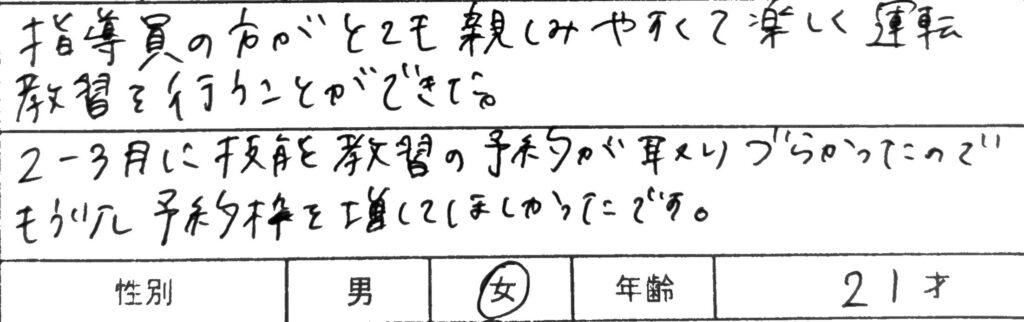 指導員の方がとても親しみやすくて楽しく運転
教習を行うことができた。
2-3月に技能教習の予約が取りづらかったので
もう少し予約枠を増してほしかったです。
性別 男 女 年齢 21才